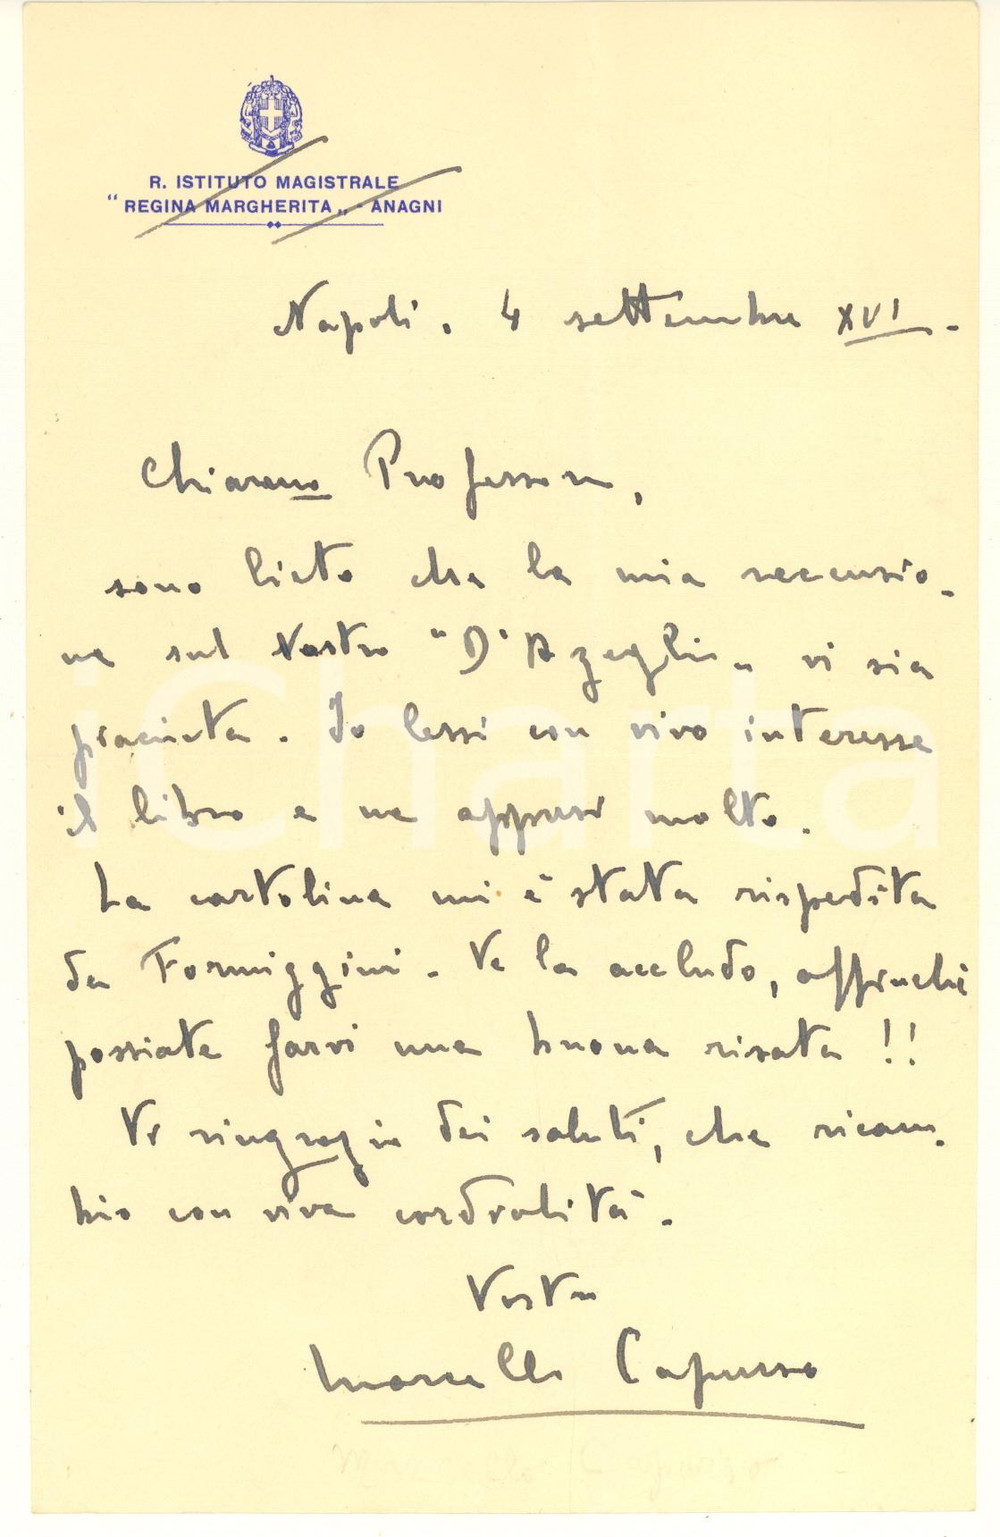 R. ISTITUTO MAGISTRALE
“ REGINA MARGHERITA „ - ANAGNI
Napoli, 4 settembre XVI.
Chiar.mo Professore,
sono lieto che la mia recensio-
ne sul Vostro "D'Azeglio„ vi sia
piaciuta. Io lessi con vivo interesse
il libro e ne appresi molto.
La cartolina mi è stata rispedita
da Formiggini. Ve la accludo, affinché
possiate farvi una buona risata !!
Vi ringrazio dei saluti, che ricam-
bio con viva cordialità.
Vostro
Marcello Capurso
iCharta
Marcello Capurso